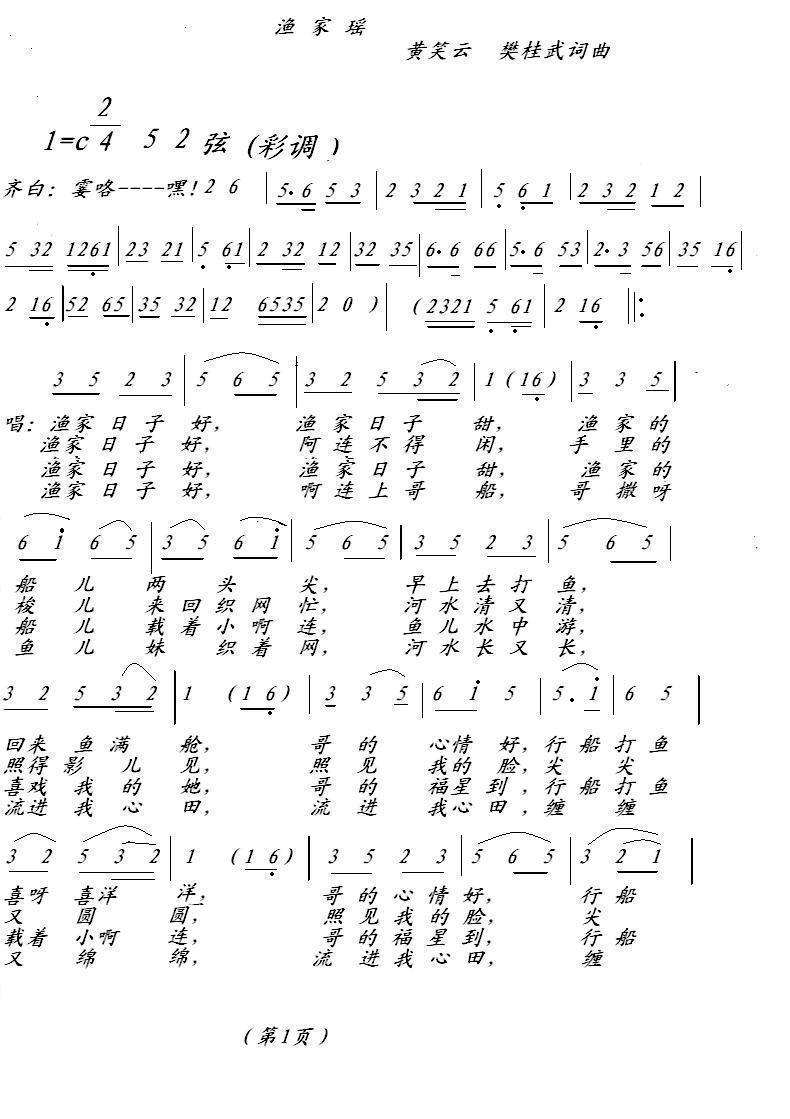 渔 家 瑶
黄笑云 樊桂武词曲
1=c 2/4 5 2 弦 (彩调)
齐白: 霎咯----嘿! 2 6 | 5. 6 5 3 | 2 3 2 1 | 5 6 1 | 2 3 2 1 2 |
5 32 1261 | 23 21 | 5 61 | 2 32 12 | 32 35 | 6. 6 66 | 5. 6 53 | 2. 3 56 | 35 16 |
2 16 | 52 65 | 35 32 | 12 6535 | 2 0 ) | (2321 5 61 | 2 16 ||:
3 5 2 3 | 5 6 5 | 3 2 5 3 2 | 1 (16) | 3 3 5 |
唱: 渔家日子好, 渔家日子甜, 渔家的
渔家日子好, 阿连不得闲, 手里的
渔家日子好, 渔家日子甜, 渔家的
渔家日子好, 啊连上哥船, 哥撒呀
6 i 6 5 | 3 5 6 i | 5 6 5 | 3 5 2 3 | 5 6 5 |
船儿两头尖, 早上去打鱼,
梭儿来回织网忙, 河水清又清,
船儿载着小啊连, 鱼儿水中游,
鱼儿妹织着网, 河水长又长,
3 2 5 3 2 | 1 (16) | 3 3 5 | 6 i 5 | 5. i | 6 5 |
回来鱼满舱, 哥的心情好, 行船打鱼
照得影儿见, 照见我的脸, 尖尖
喜戏我的她, 哥的福星到, 行船打鱼
流进我心田, 流进我心田, 缠缠
3 2 5 3 2 | 1 (16) | 3 5 2 3 | 5 6 5 | 3 2 1 |
喜呀喜洋洋, 哥的心情好, 行船
又圆圆, 照见我的脸, 尖
载着小啊连, 哥的福星到, 行船
又绵绵, 流进我心田, 缠
(第1页)